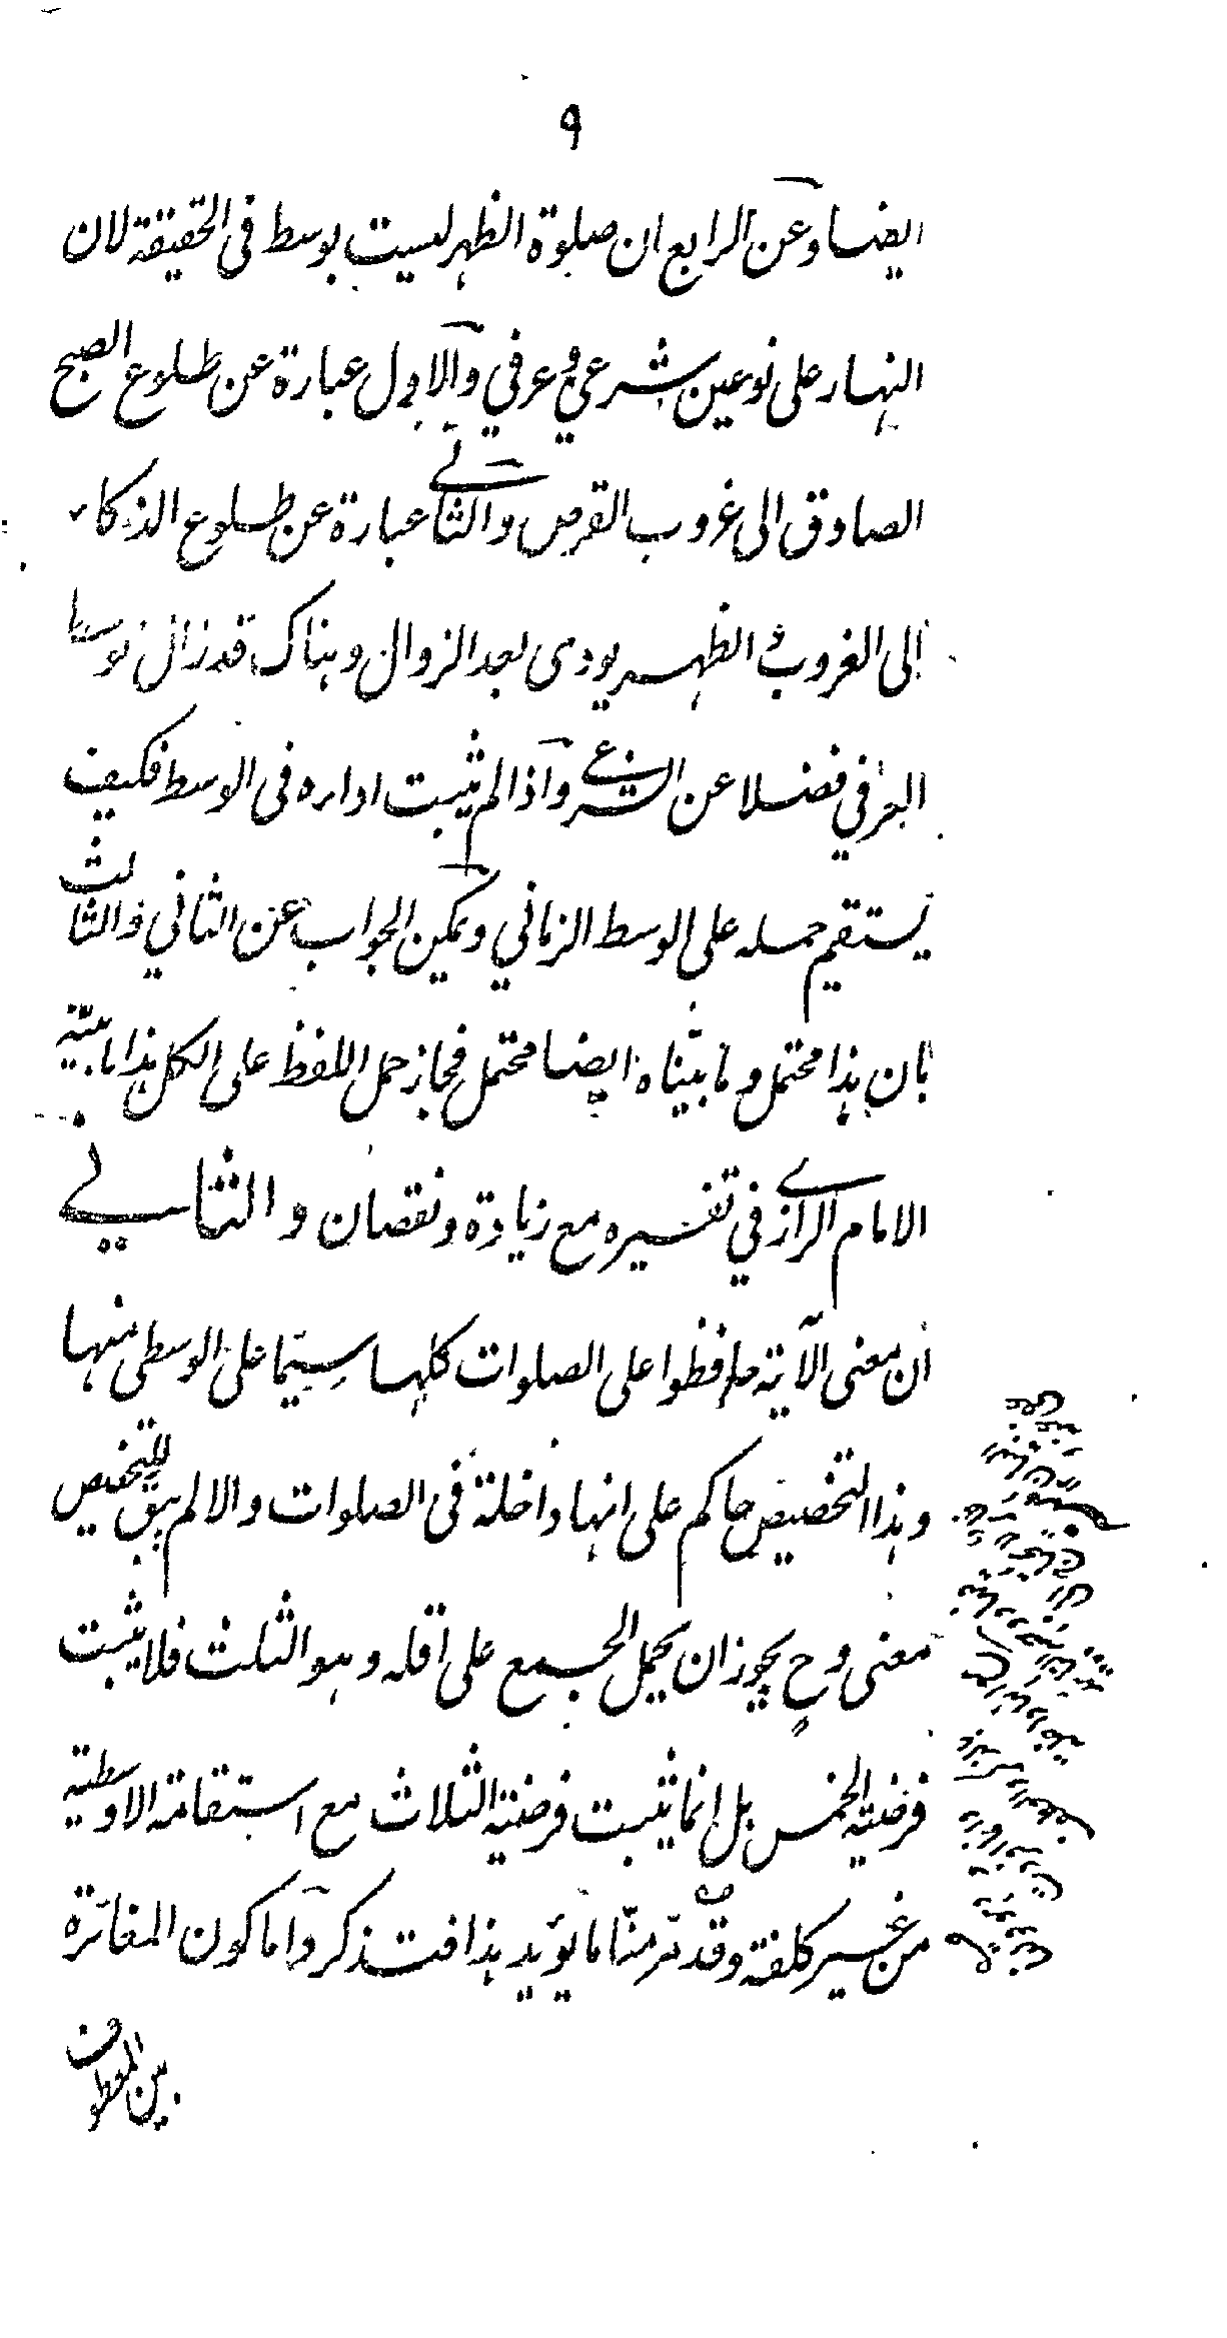 ٩
ايضا وعن الرابع ان صلوة الظهر ليست بوسط فى الحقيقة لان
النهار على نوعين شرعي وعرفي والاول عبارة عن طلوع الصبح
الصادق الى غروب القرص والثانے عبارة عن طلوع الذكاء
الى الغروب والظهر يودى بعد الزوال وهناك قد زال توسط
العرفي فضلا عن الشرعے واذا لم يثبت اداره فى الوسط فكيف
يستقيم حمله على الوسط الزماني ويمكن الجواب عن الثاني والثالث
بان هذا محتمل وما بيّناه ايضا محتمل فجاز حمل اللفظ على الكل هذا ما بيّنه
الامام الرازے في تفسيره مع زيادة ونقصان والثانے
ان معنى الآية حافظوا على الصلوات كلها سيّما على الوسطى منها
وهذا التخصيص حاكم على انها داخلة فى الصلوات والا لم يبق للتخصيص
معنى وح يجوز ان يحمل الجمع على اقله وهو الثلث فلا يثبت
فرضية الخمس بل انما يثبت فرضية الثلاث مع استقامة الاوسطية
من غير كلفة وقد مرّ منّا ما يؤيد هذا فتذكر واما كون المغائرة
بين المعطوف